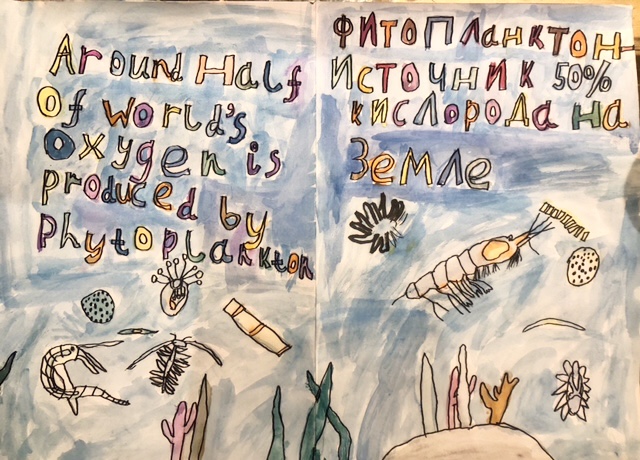 Around Half
of world's
oxygen is
produced by
phytoplankton
ФИТОПланктон-
Источник 50%
кислорода на
Земле